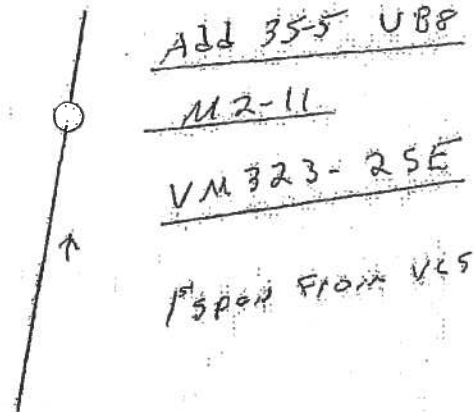 Add 35-5 VB8
M2-11
VM323-25E
1st span From VC5